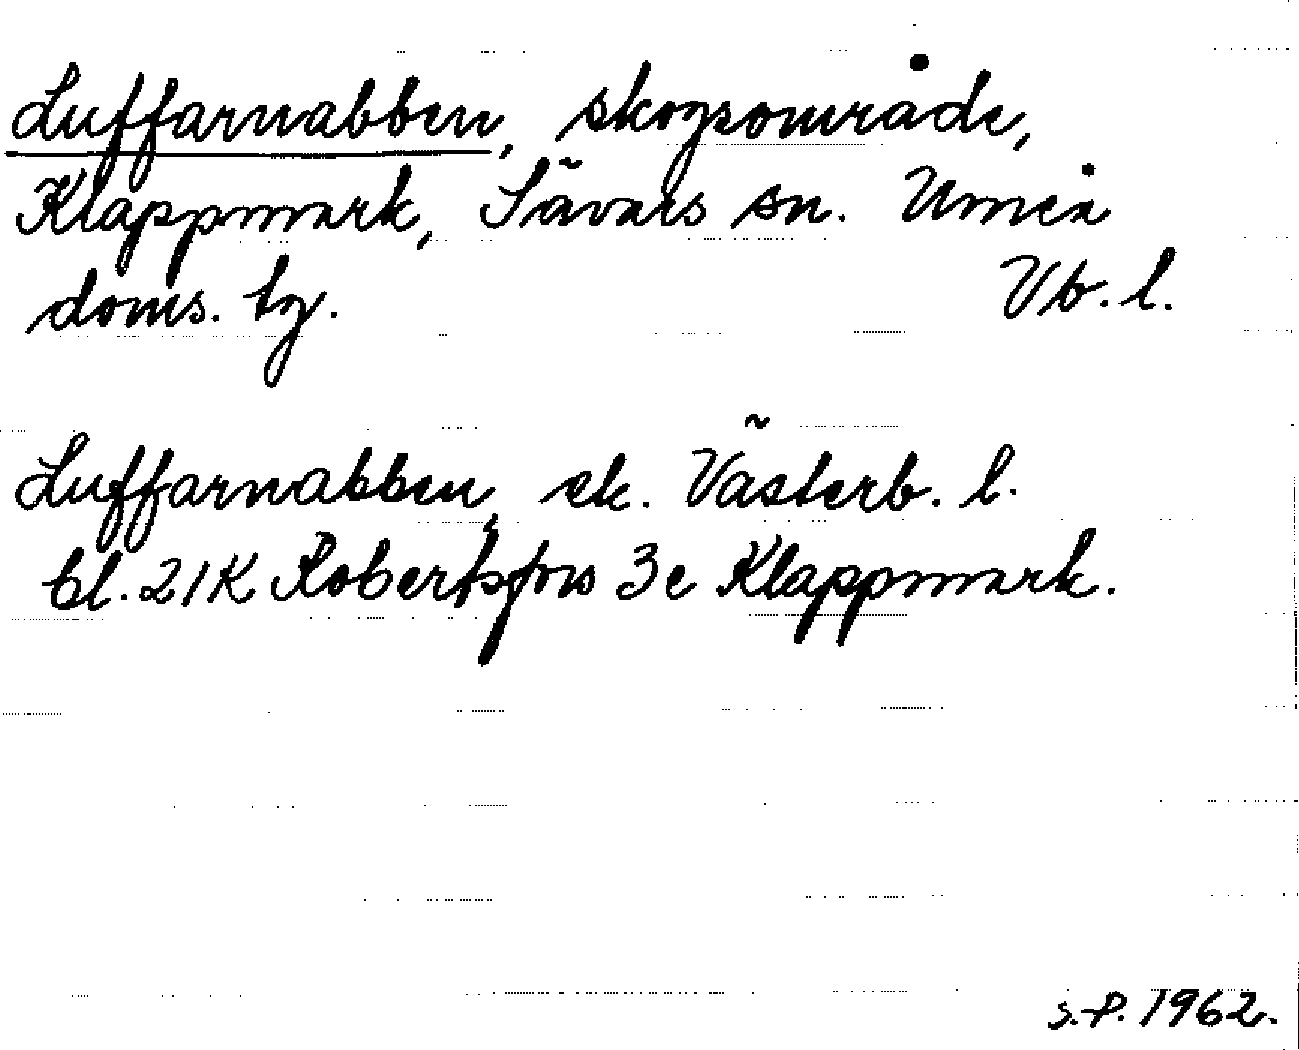 Luffarnabben, skogsområde,
Klappmark, Sävars sn. Umeå
doms. tg. Vb. l.
Luffarnabben, ek. Västerb. l.
bl. 21K Robertsfors 3e Klappmark.
S.-P. 1962.